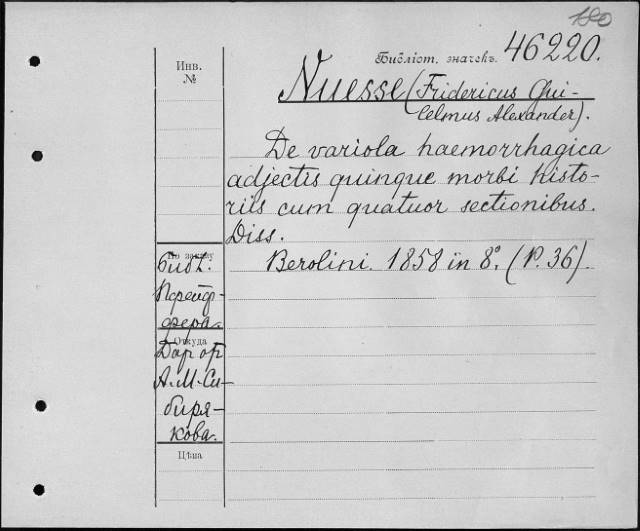 180
Библіот. значекъ 46220.
Инв.
№
Nuesse (Fridericus Gui-
lelmus Alexander).
De variola haemorrhagica
adjectis quinque morbi histo-
riis cum quatuor sectionibus.
Diss.
Berolini. 1858 in 8°. (P. 36).
По заказу
Библ.
Пфейф-
фера.
Откуда
Дар от
А. М. Си-
биря-
кова.
Цѣна